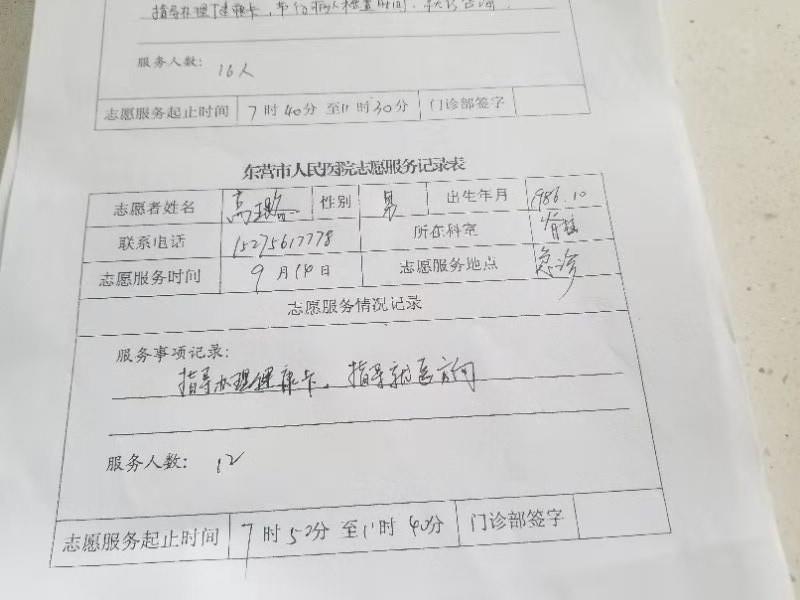 指导办理健康卡,
服务人数: 16人
志愿服务起止时间 7时40分至11时30分 门诊部签字
东营市人民医院志愿服务记录表
志愿者姓名 高 性别 男 出生年月 1986.10
联系电话 15275617778 所在科室 脊柱
志愿服务时间 9月14日 志愿服务地点 急诊
志愿服务情况记录
服务事项记录:
指导办理健康卡,指导就医方向
服务人数: 12
志愿服务起止时间 7时52分至11时40分 门诊部签字